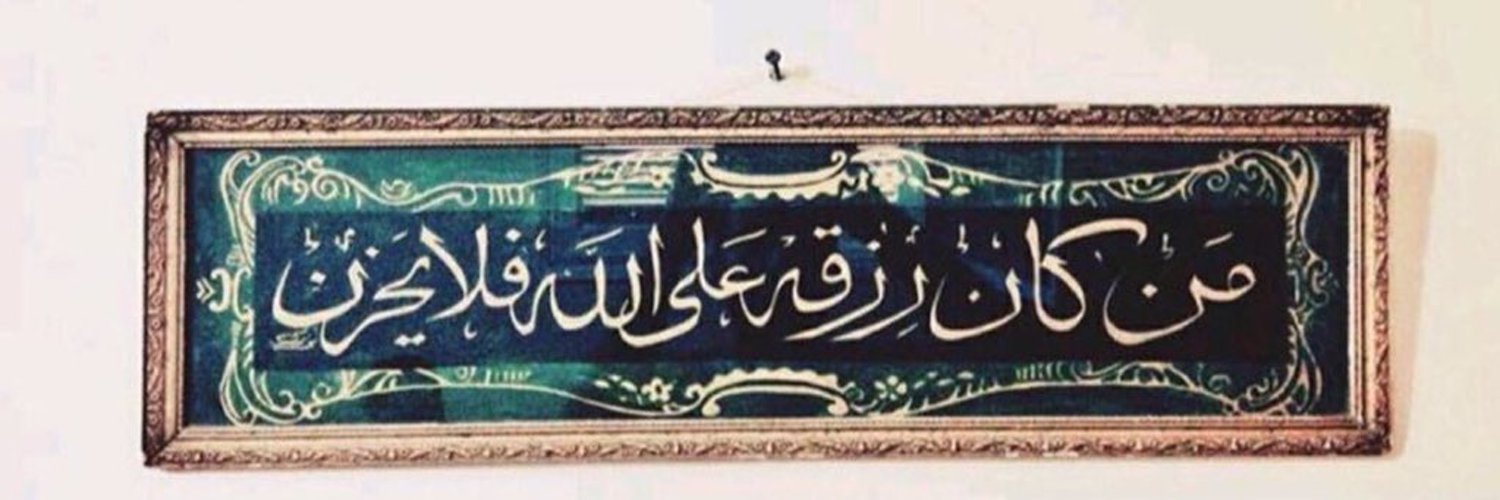 مَن كان رِزقه عَلى اللَّه فلا يَحزن